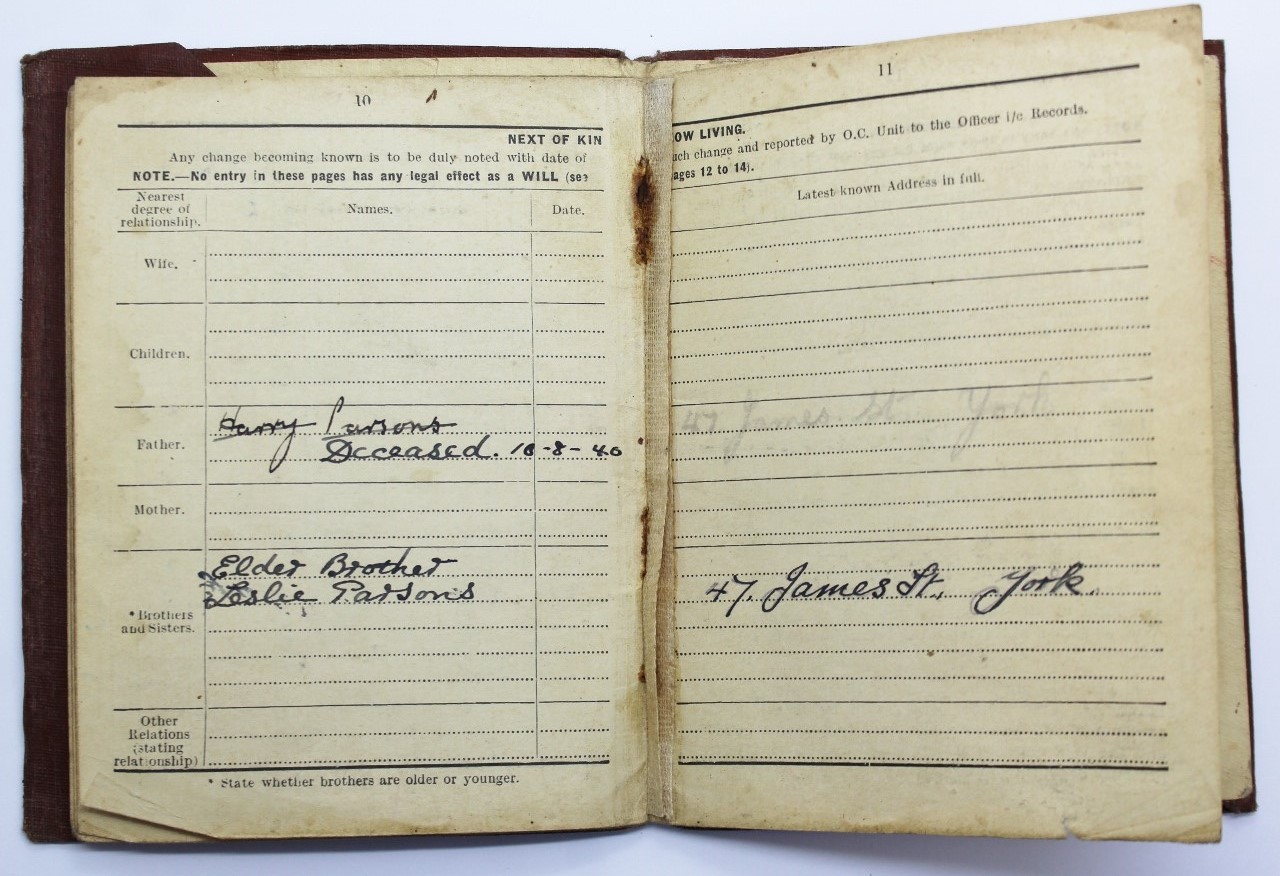 10
NEXT OF KIN
Any change becoming known is to be duly noted with date of
NOTE.—No entry in these pages has any legal effect as a WILL (see
Nearest
degree of
relationship.
Names.
Date.
Wife.
Children.
Father.
Harry Parsons
Deceased. 10-8-40
Mother.
Elder Brother
Leslie Parsons
* Brothers
and Sisters.
Other
Relations
(stating
relationship)
* State whether brothers are older or younger.
11
OW LIVING.
uch change and reported by O.C. Unit to the Officer i/c Records.
ages 12 to 14).
Latest known Address in full.
47 James St York
47, James St, York.